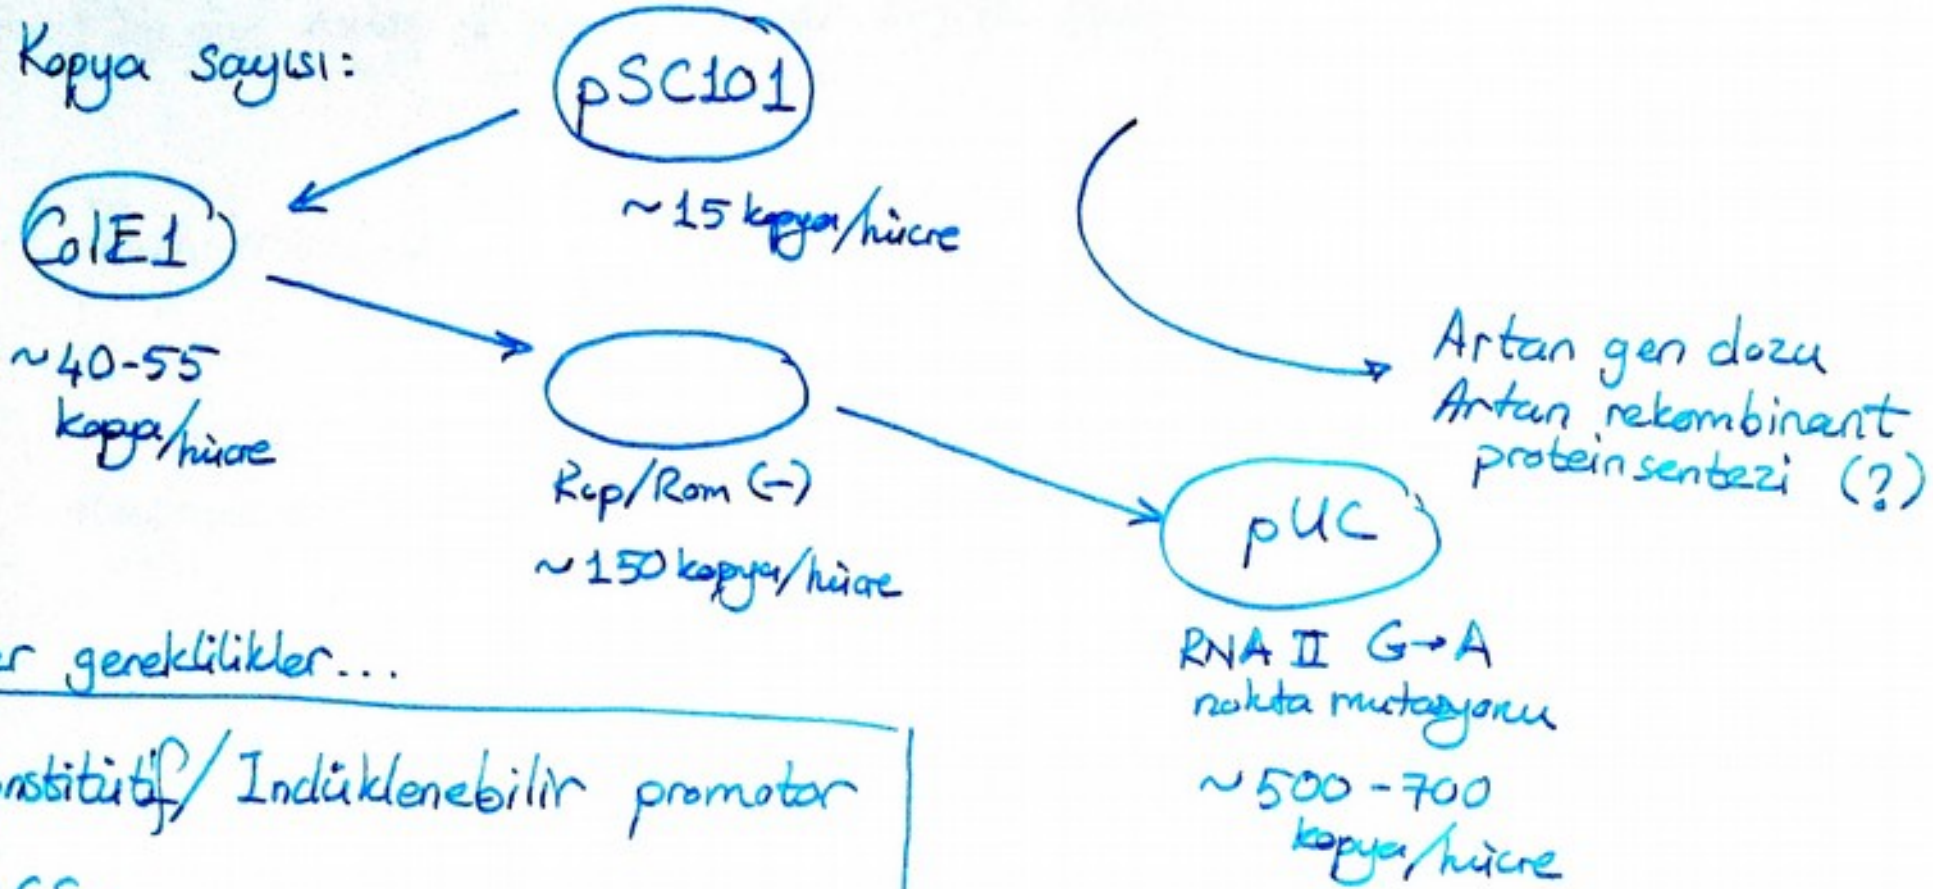 Kopya sayısı:
pSC101
~15 kopya/hücre
ColE1
~40-55
kopya/hücre
Rop/Rom (-)
~150 kopya/hücre
Artan gen dozu
Artan rekombinant
protein sentezi (?)
pUC
RNA II G→A
nokta mutasyonu
~500-700
kopya/hücre
gereklilikler...
İndüklenebilir promotor